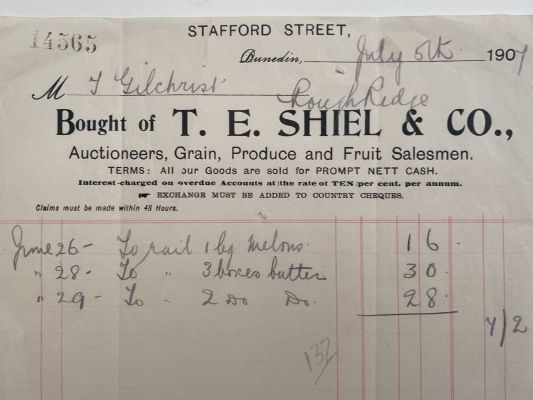 STAFFORD STREET,
14565
Dunedin, July 5th 1907
M T Gilchrist
Rough Ridge
Bought of T. E. SHIEL & CO.,
Auctioneers, Grain, Produce and Fruit Salesmen.
TERMS: All our Goods are sold for PROMPT NETT CASH.
Interest charged on overdue Accounts at the rate of TEN per cent. per annum.
☛ EXCHANGE MUST BE ADDED TO COUNTRY CHEQUES.
Claims must be made within 48 Hours.
June 26 - To rail 1 bg Melons. 1 6
" 28 - To " 3 boxes butter 3 0
" 29 - To " 2 Do Do. 2 8
7/2
132